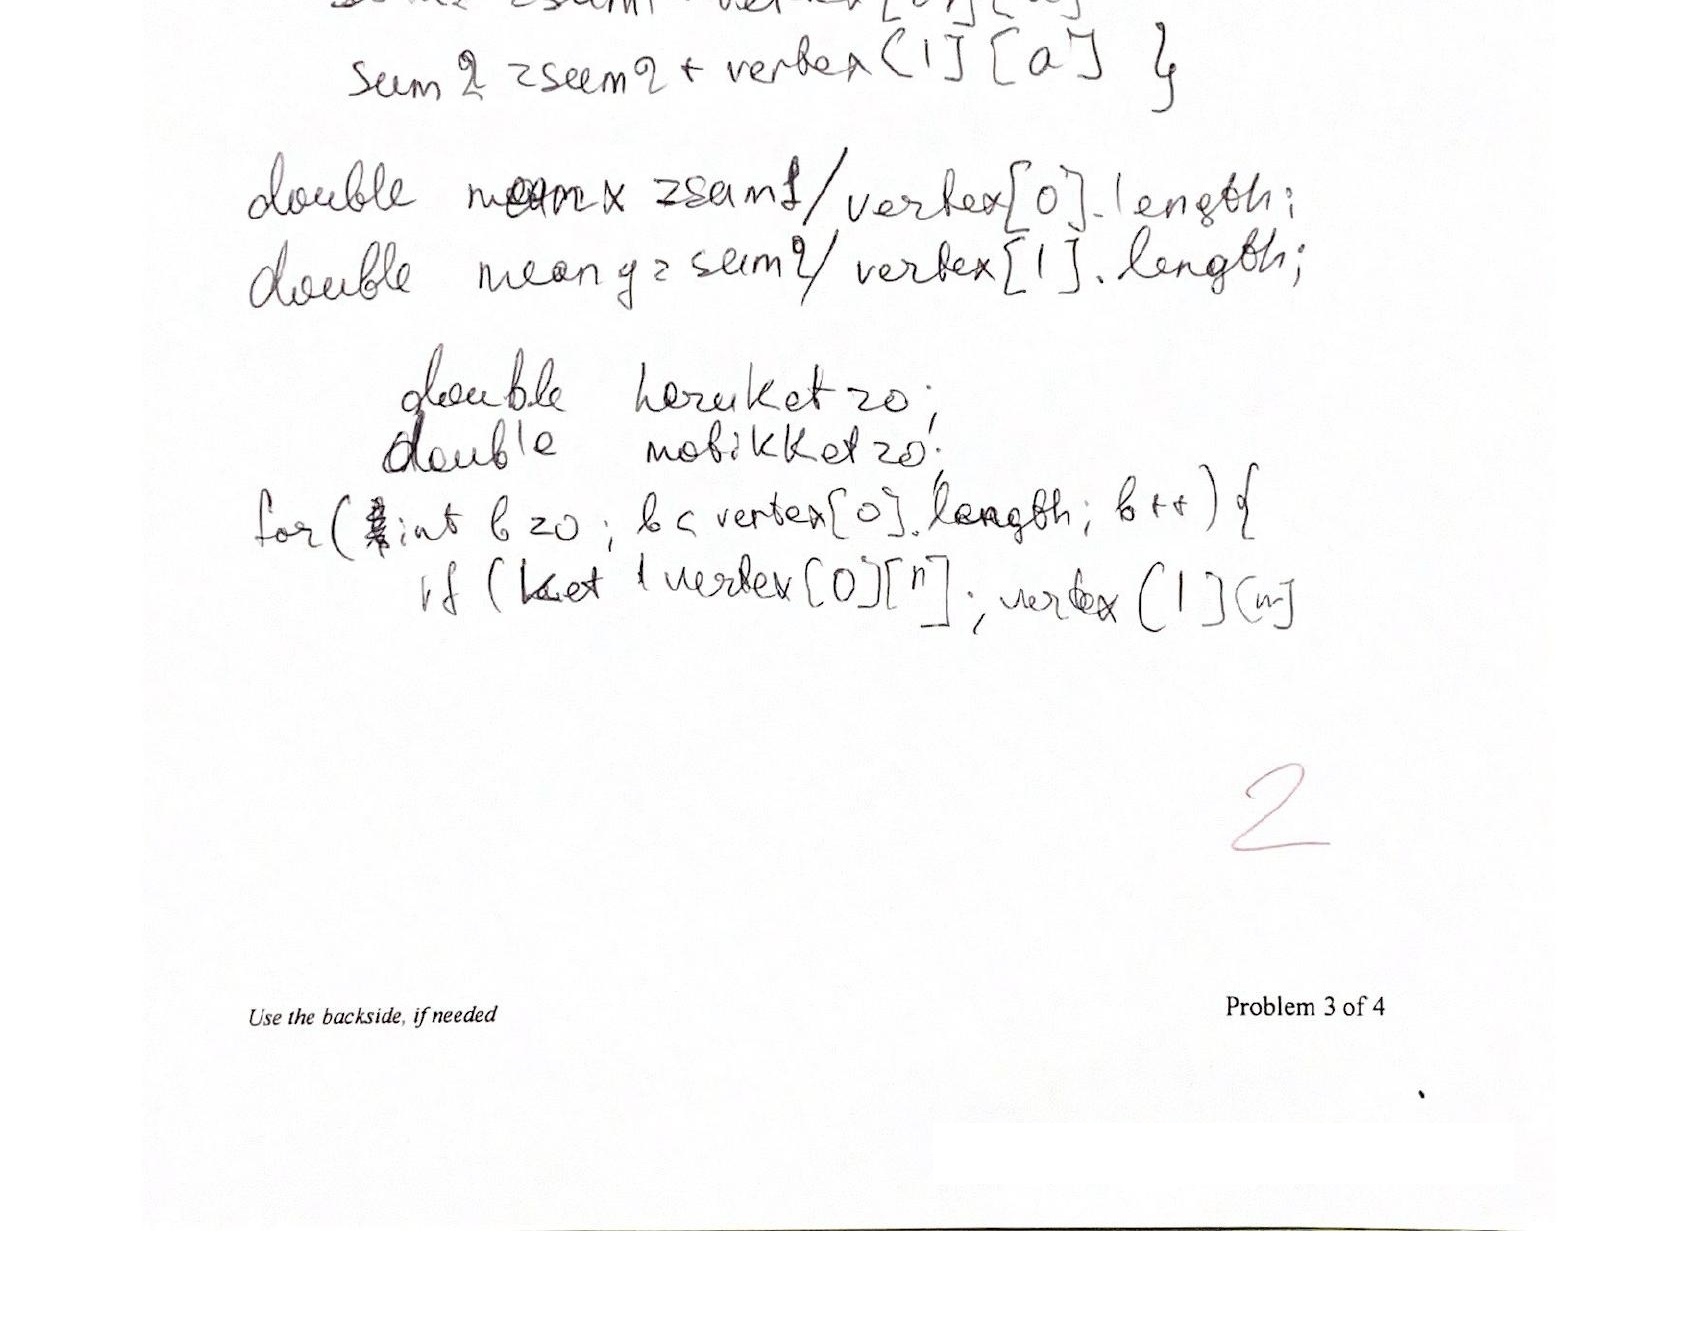 sum2 = sum2 + vertex[1][a] }
double meanx = sum1/vertex[0].length;
double meany = sum2/vertex[1].length;
double heruket = 0;
double motikket = 0;
for(int b = 0; b < vertex[0].length; b++) {
if (ket vertex[0][n]; vertex[1][n]
2
Use the backside, if needed
Problem 3 of 4